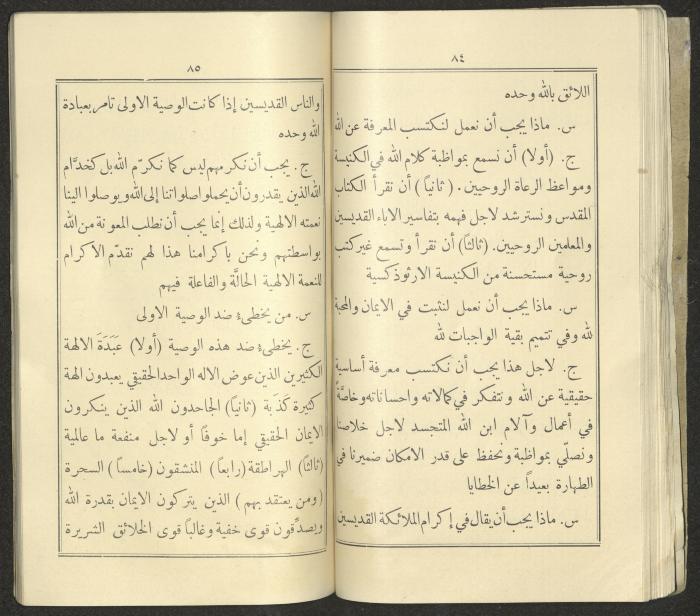 ٨٤
اللائق بالله وحده
س. ماذا يجب أن نعمل لنكتسب المعرفة عن الله
ج. (أولا) أن نسمع بمواظبة كلام الله في الكنيسة
ومواعظ الرعاة الروحيين. (ثانياً) أن نقرأ الكتاب
المقدس ونسترشد لاجل فهمه بتفاسير الاباء القديسين
والمعلمين الروحيين. (ثالثاً) أن نقرأ ونسمع غير كتب
روحية مستحسنة من الكنيسة الارثوذكسية
س. ماذا يجب أن نعمل لنثبت في الايمان والمحبة
لله وفي تتميم بقية الواجبات لله
ج. لاجل هذا يجب أن نكتسب معرفة أساسية
حقيقية عن الله ونتفكر في كمالاته واحساناته وخاصَّةً
في أعمال وآلام ابن الله المتجسد لاجل خلاصنا
ونصلّي بمواظبة ونحفظ على قدر الامكان ضميرنا في
الطهارة بعيداً عن الخطايا
س. ماذا يجب أن يقال في إكرام الملائكة القديسين
٨٥
والناس القديسين إذا كانت الوصية الاولى تامر بعبادة
الله وحده
ج. يجب أن نكرمهم ليس كما نكرّم الله بل كخدَّام
الله الذين يقدرون أن يحملوا صلواتنا إلى الله ويوصلوا الينا
نعمته الالهية ولذلك إنما يجب أن نطلب المعونة من الله
بواسطتهم ونحن باكرامنا هذا لهم نقدّم الاكرام
للنعمة الالهية الحالَّة والفاعلة فيهم
س. من يخطىء ضد الوصية الاولى
ج. يخطىء ضد هذه الوصية (أولا) عَبَدَةَ الالهة
الكثيرين الذين عوض الاله الواحد الحقيقي يعبدون الهة
كثيرة كَذَبة (ثانياً) الجاحدون الله الذين ينكرون
الايمان الحقيقي إما خوفاً أو لاجل منفعة ما عالمية
(ثالثاً) الهراطقة (رابعاً) المنشقون (خامساً) السحرة
(ومن يعتقد بهم) الذين يتركون الايمان بقدرة الله
ويصدّقون قوى خفية وغالباً قوى الخلائق الشريرة